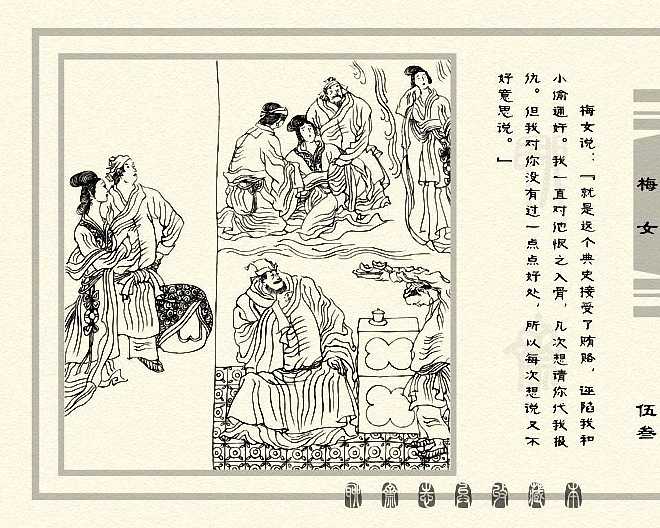 梅女说：“就是这个典史接受了贿赂，诬陷我和
小偷通奸。我一直对他恨之入骨，几次想请你代我报
仇。但我对你没有过一点点好处，所以每次想说又不
好意思说。”
梅女
伍叁
聊斋志异收藏本